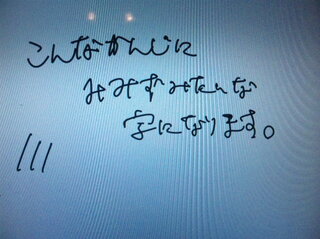 こんなかんじに
みみずみたいな
字になります。